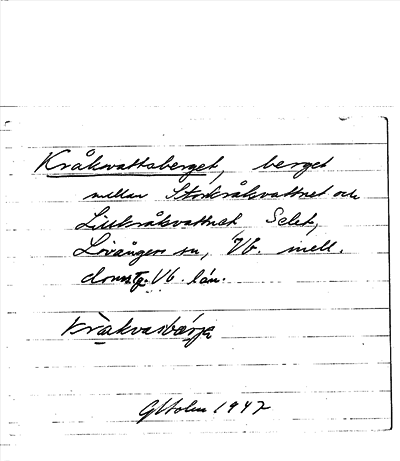 Kråkvattsberget, berget
mellan Storkråkvattnet och
Lillkråkvattnet Selet,
Lövånger sn, Vb. mell.
domsg. Vb. län.
GHolm 1947